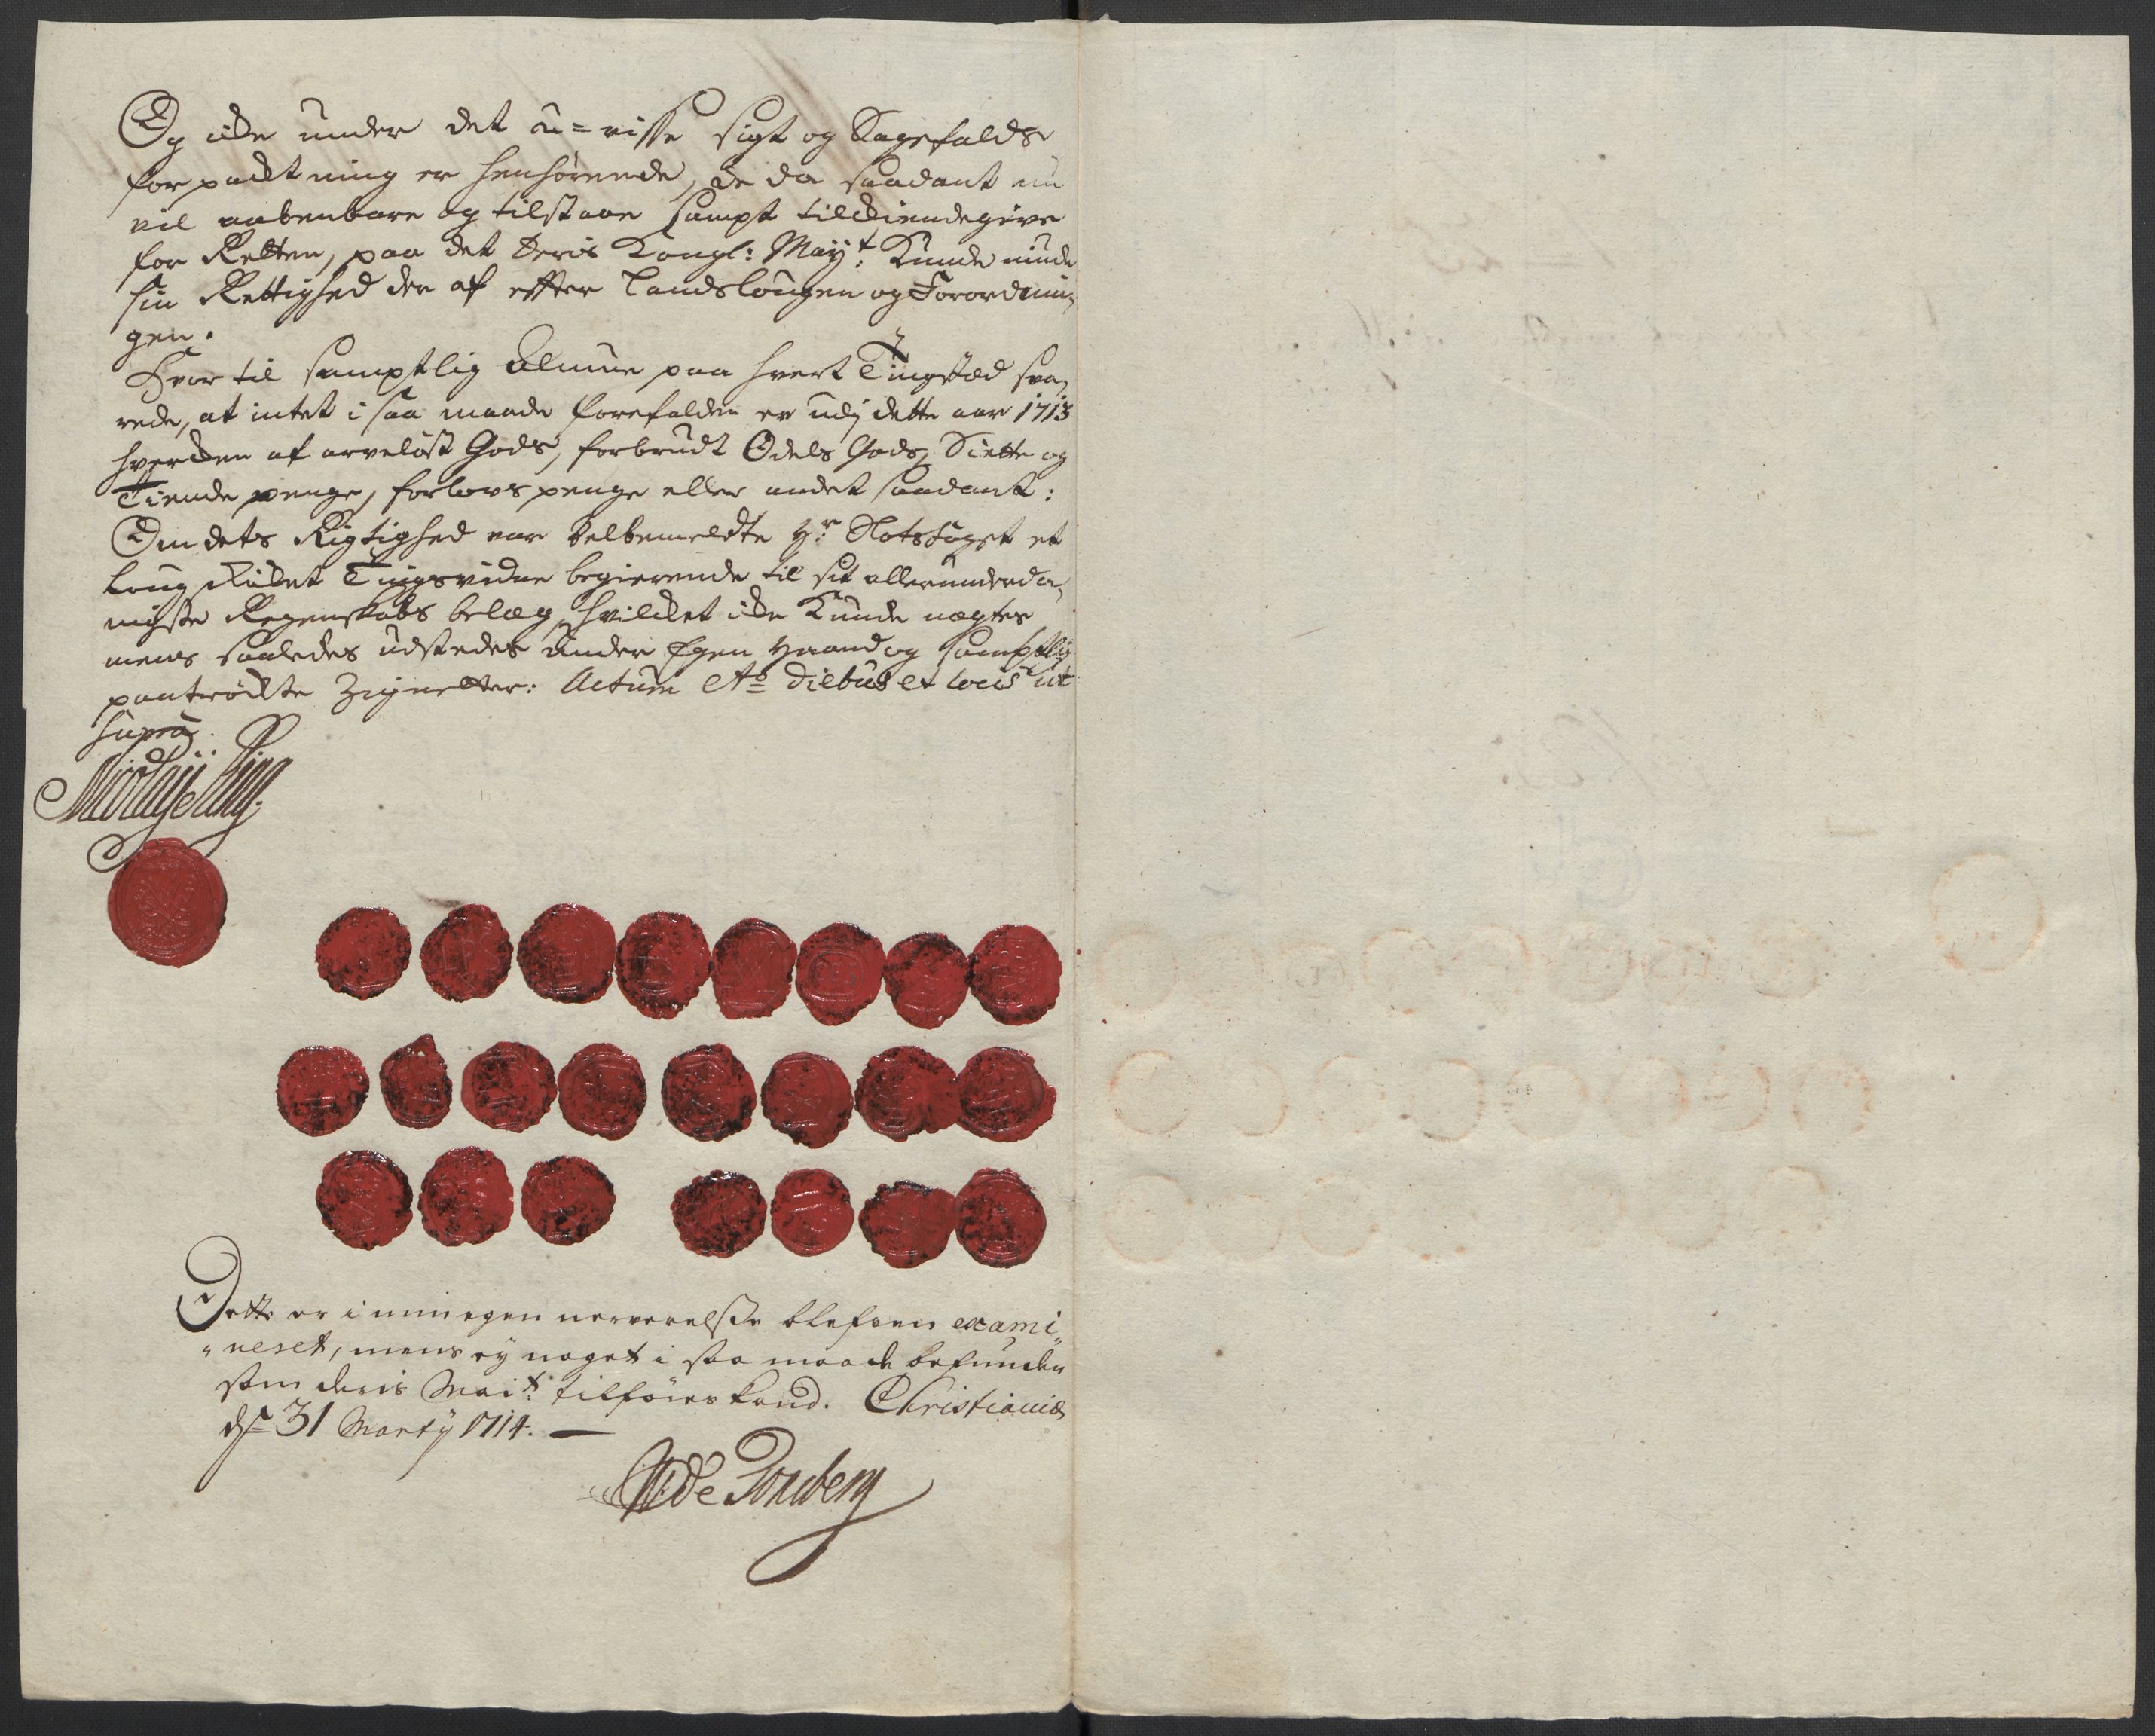 Og icke under det u=visse sigt og Sagefalds
forpacktning er henhørende, de da saadant nu
vil aabenbare og tilstaae sampt tilckiendegive
for Retten, paa det Deris Kongl: May:t Kunde nÿde
sin Rettighed der af effter Landslougen og Forordnin,
gen.
Hvor til samptlig Almue paa hvert Tingsted sva,
rede, at intet i saa maade forefalden er udj dette aar 1713
hvercken af arveløst Gods, forbrudt Odels Gods, Siette og
Tiende penge, forlovs penge eller andet saadant:
Om dets Rigtighed var Velbemeldte Hr: Slotsfoget et
laug Tingsvidne begierende til sit allerunderda,
nigste Regenskabs belæg, hvilcket icke Kunde nægtes
mens saaledes udstedes under Egen Haand og samptlig
paatrøckte Zignetter: Actum Ao Diebus et locis ut
supra.
Nicolaÿ Ring
Dette er i min egen nerverelse blefven exami,
neret, mens ey noget i saa maade befunden
som deris Mai:t tilføies kand. Christiania
dn 31 Martÿ 1714.
de Tonsberg